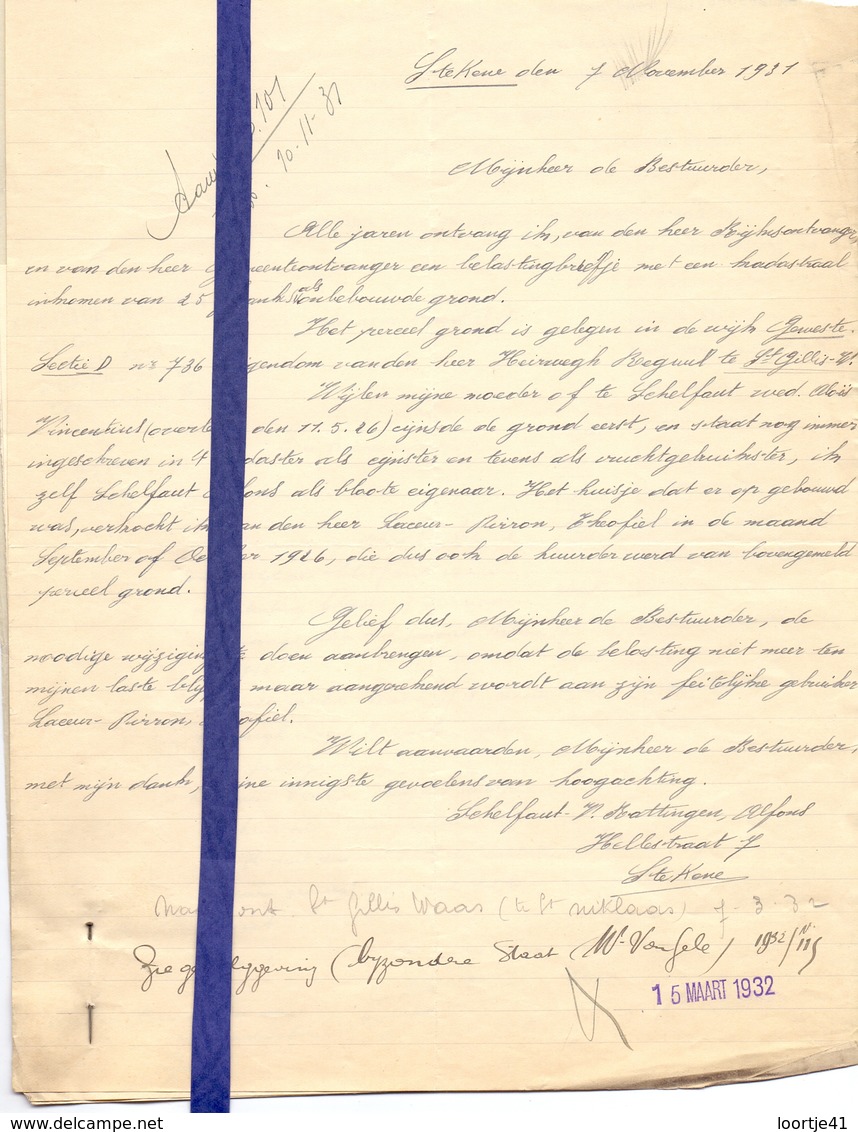 Stekene den 7 November 1931
10-11-31
Mijnheer de Bestuurder,
Alle jaren ontvang ik, van den heer Rijksontvanger,
en van den heer eenteontvanger een belastingbriefje met een kadastraal
inkomen van 25 anks als onbebouwde grond.
Het perceel grond is gelegen in de wijk Geweste.
Sectie D nr 736 igendom van den heer Heirwegh te St Gillis-W.
Wijlen mijne moeder of te Schelfaut wed. Aloïs
Vincentius (overle den 11.5.26) cijnsde de grond eerst, en staat nog immer
ingeschreven in 't daster als cijnster en tevens als vruchtgebruikster, ik
zelf Schelfaut fons als bloote eigenaar. Het huisje dat er op gebouwd
was, verkocht ik an den heer Laceur-Pirron, Theofiel in de maand
September of Oc er 1926, die dus ook de huurder werd van bovengemeld
perceel grond.
Gelief dus, Mijnheer de Bestuurder, de
noodige wijziging te doen aanbrengen, omdat de belasting niet meer ten
mijnen laste blij maar aangerekend wordt aan zijn feitelijke gebruiker
Laceur-Pirron, ofiel.
Wilt aanvaarden, Mijnheer de Bestuurder,
met mijn dank, ine innigste gevoelens van hoogachting.
Schelfaut-V. Kattingen, Alfons
Hellestraat 7
Stekene
St Gillis Waas (te St Niklaas) 7-3-32
Zie ge lggeving (byzondre Staat 1932
15 MAART 1932
loortje41